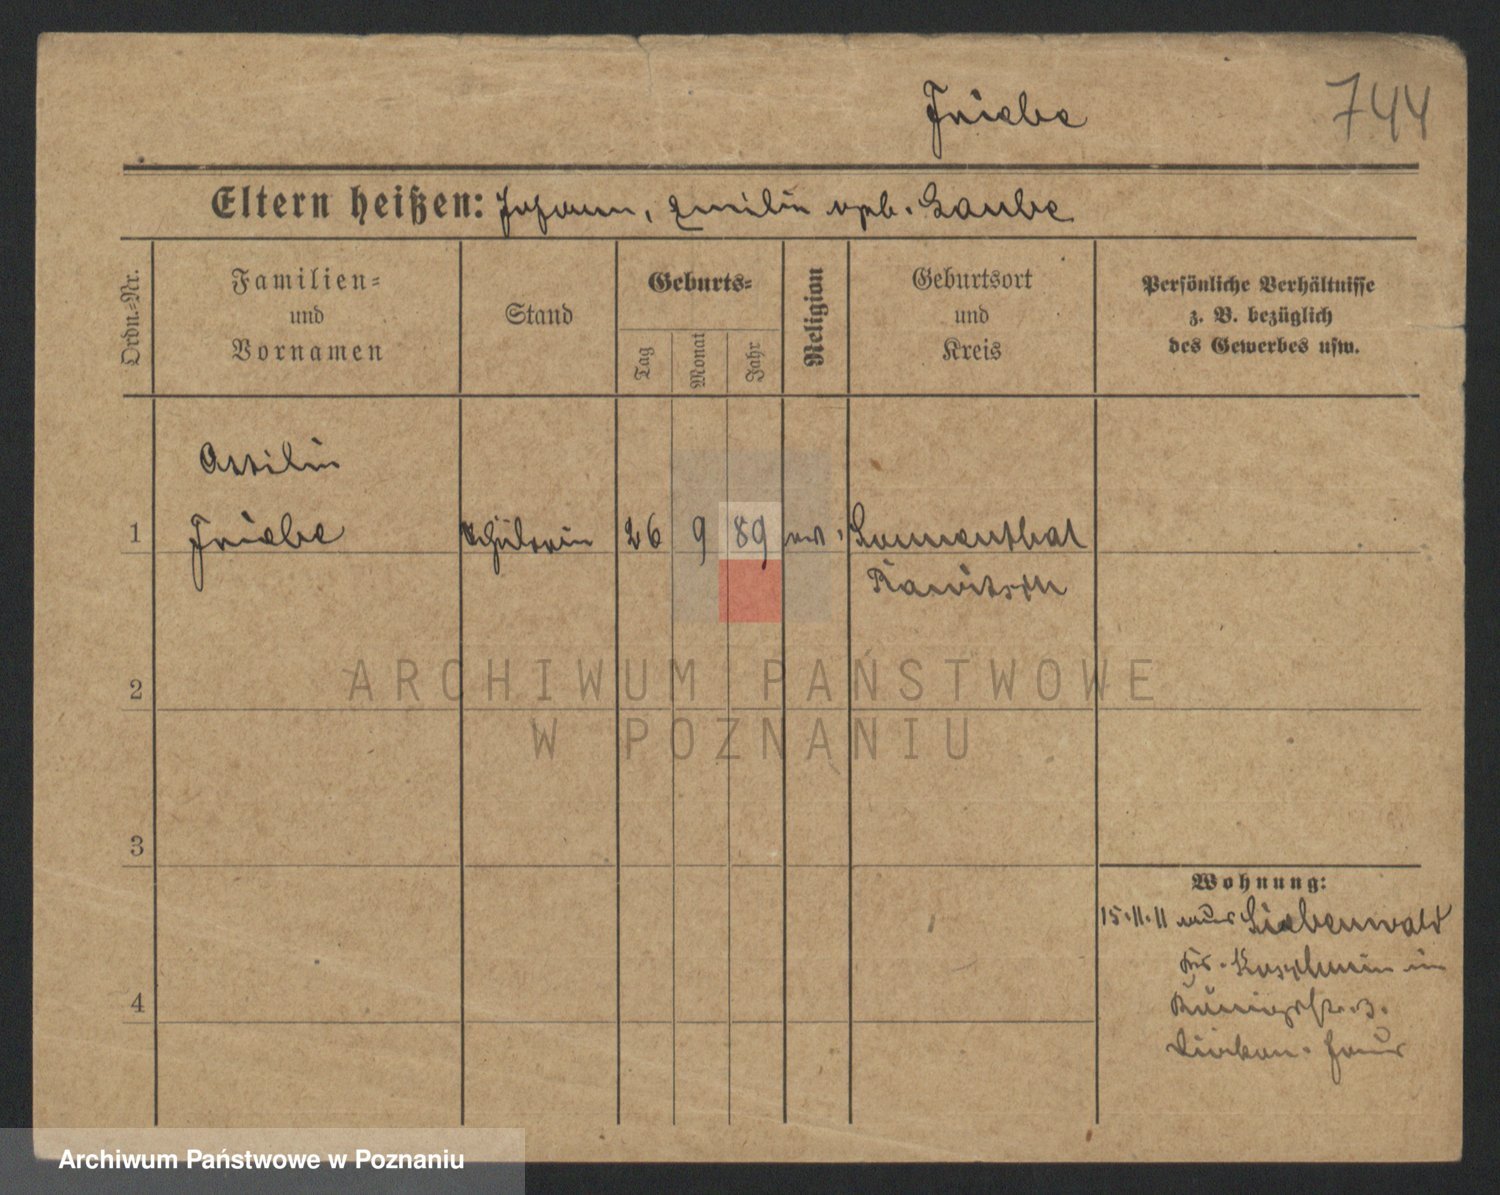 Friebe
744
Eltern heißen: Johann, Emilie geb. Laube
Ordn.-Nr.
Familien-
und
Vornamen
Stand
Geburts-
Tag
Monat
Jahr
Religion
Geburtsort
und
Kreis
Persönliche Verhältnisse
z. B. bezüglich
des Gewerbes usw.
Ottilie
1 Friebe Schülerin 26 9 89 ev. Sonnenthal
Rawitsch
2
3
4
Wohnung:
15.11.11 aus Siebenwald
Kr. Koschmin in
Königstr. 3.
Diakon. Haus
ARCHIWUM PAŃSTWOWE
W POZNANIU
Archiwum Państwowe w Poznaniu